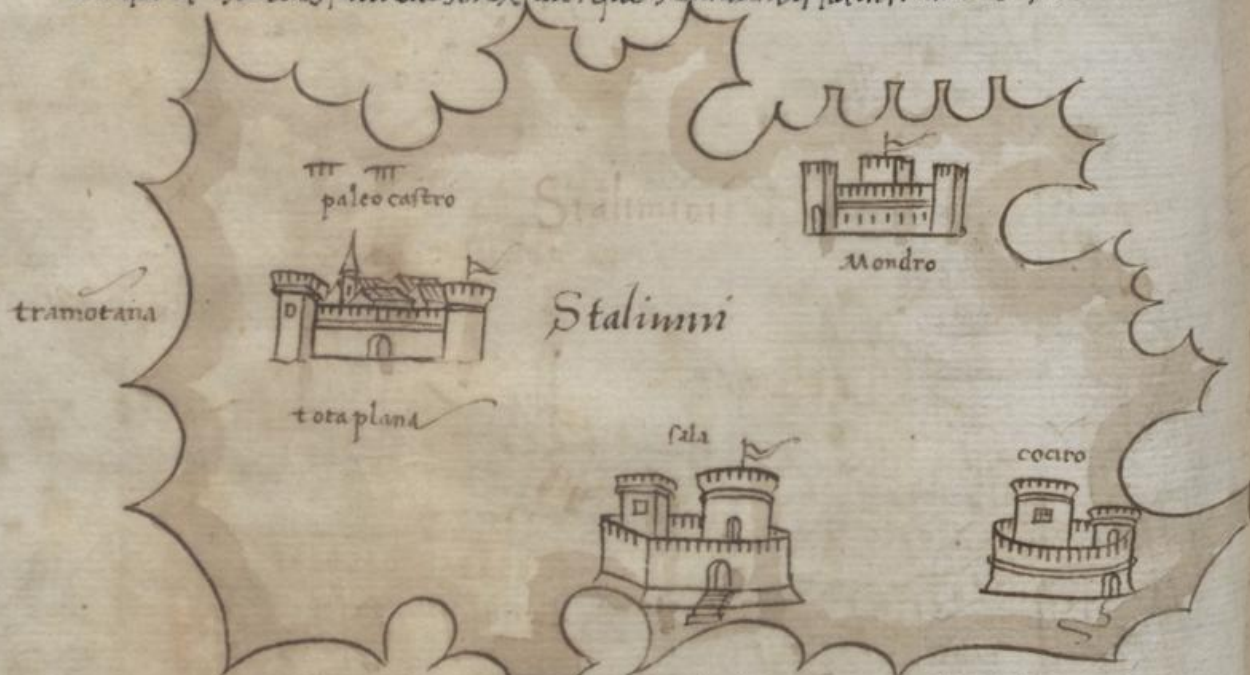 paleo castro
Mondro
tramotana
Stalimni
tota plana
sala
cociro